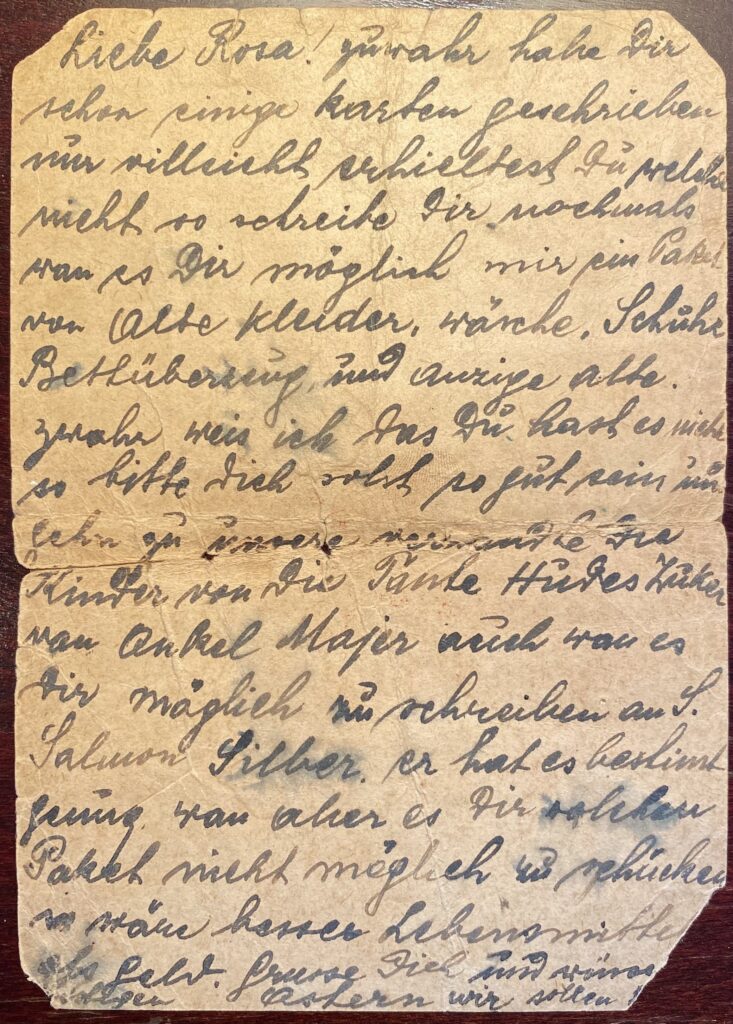 Liebe Rosa! zuwahr habe Dir
schon einige karten geschrieben
nur villeicht erhieltest Du welche
nicht so schreibe Dir nochmals
wan es Dir möglich mir ein Paket
von Alte kleider, wäsche, Schuhe
Bettüberzug, und Anzige alte.
zwahr weis ich das Du hast es nicht
so bitte Dich solst so gut sein un
gehn zu unsere verwandte Die
Kinder von Die Tante Hudes Zuker
van Onkel Majer auch wan es
Dir möglich zu schreiben an S.
Salmon Silber. er hat es bestimt
genug. wan aber es Dir solchen
Paket nicht möglich zu schücken
so wäre besser Lebensmitte
als Geld. Grusse Dich und wünsc
Ostern wir sollen